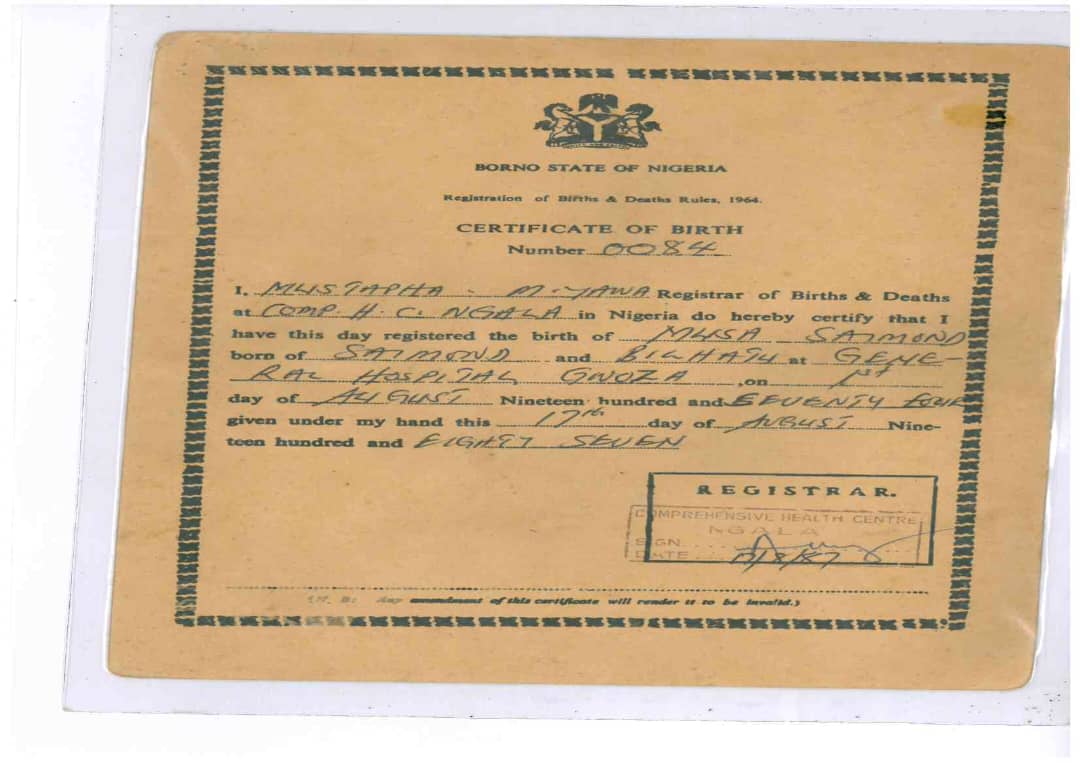 BORNO STATE OF NIGERIA
Registration of Births & Deaths Rules, 1964.
CERTIFICATE OF BIRTH
Number 0084
I, MUSTAPHA - M. YAWA Registrar of Births & Deaths
at COMP. H. C. NGALA in Nigeria do hereby certify that I
have this day registered the birth of MUSA SAIMOND
born of SAIMOND and BILHATU at GENE-
RAL HOSPITAL GWOZA ,on 1st
day of AUGUST Nineteen hundred and SEVENTY FOUR
given under my hand this 17th day of AUGUST Nine-
teen hundred and EIGHTY SEVEN
REGISTRAR.
COMPREHENSIVE HEALTH CENTRE
NGALA
SIGN
DATE 17/8/87
(N. B: Any amendment of this certificate will render it to be invalid.)